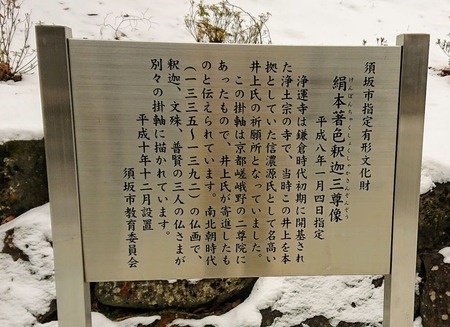 須坂市指定有形文化財
絹本著色釈迦三尊像
けんぽんちゃくしょくしゃかさんぞんぞう
平成八年一月四日指定
浄運寺は鎌倉時代初期に開基され
た浄土宗の寺で、当時この井上を本
拠としていた信濃源氏として名高い
井上氏の祈願所となっていました。
この掛軸は京都嵯峨野の二尊院に
あったもので、井上氏が寄進したも
のと伝えられています。南北朝時代
(一三三五～一三九二)の仏画で、
釈迦、文殊、普賢の三人の仏さまが
別々の掛軸に描かれています。
平成十年十二月設置
須坂市教育委員会